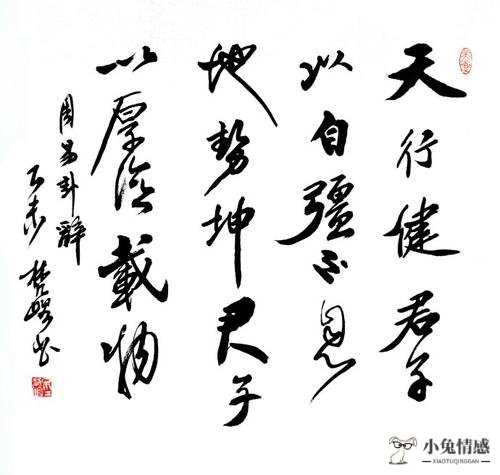 天行健君子
以自彊不息
地勢坤君子
以厚德載物
周易卦辭
乙未
小兔情感
XIAOTUQINGGAN